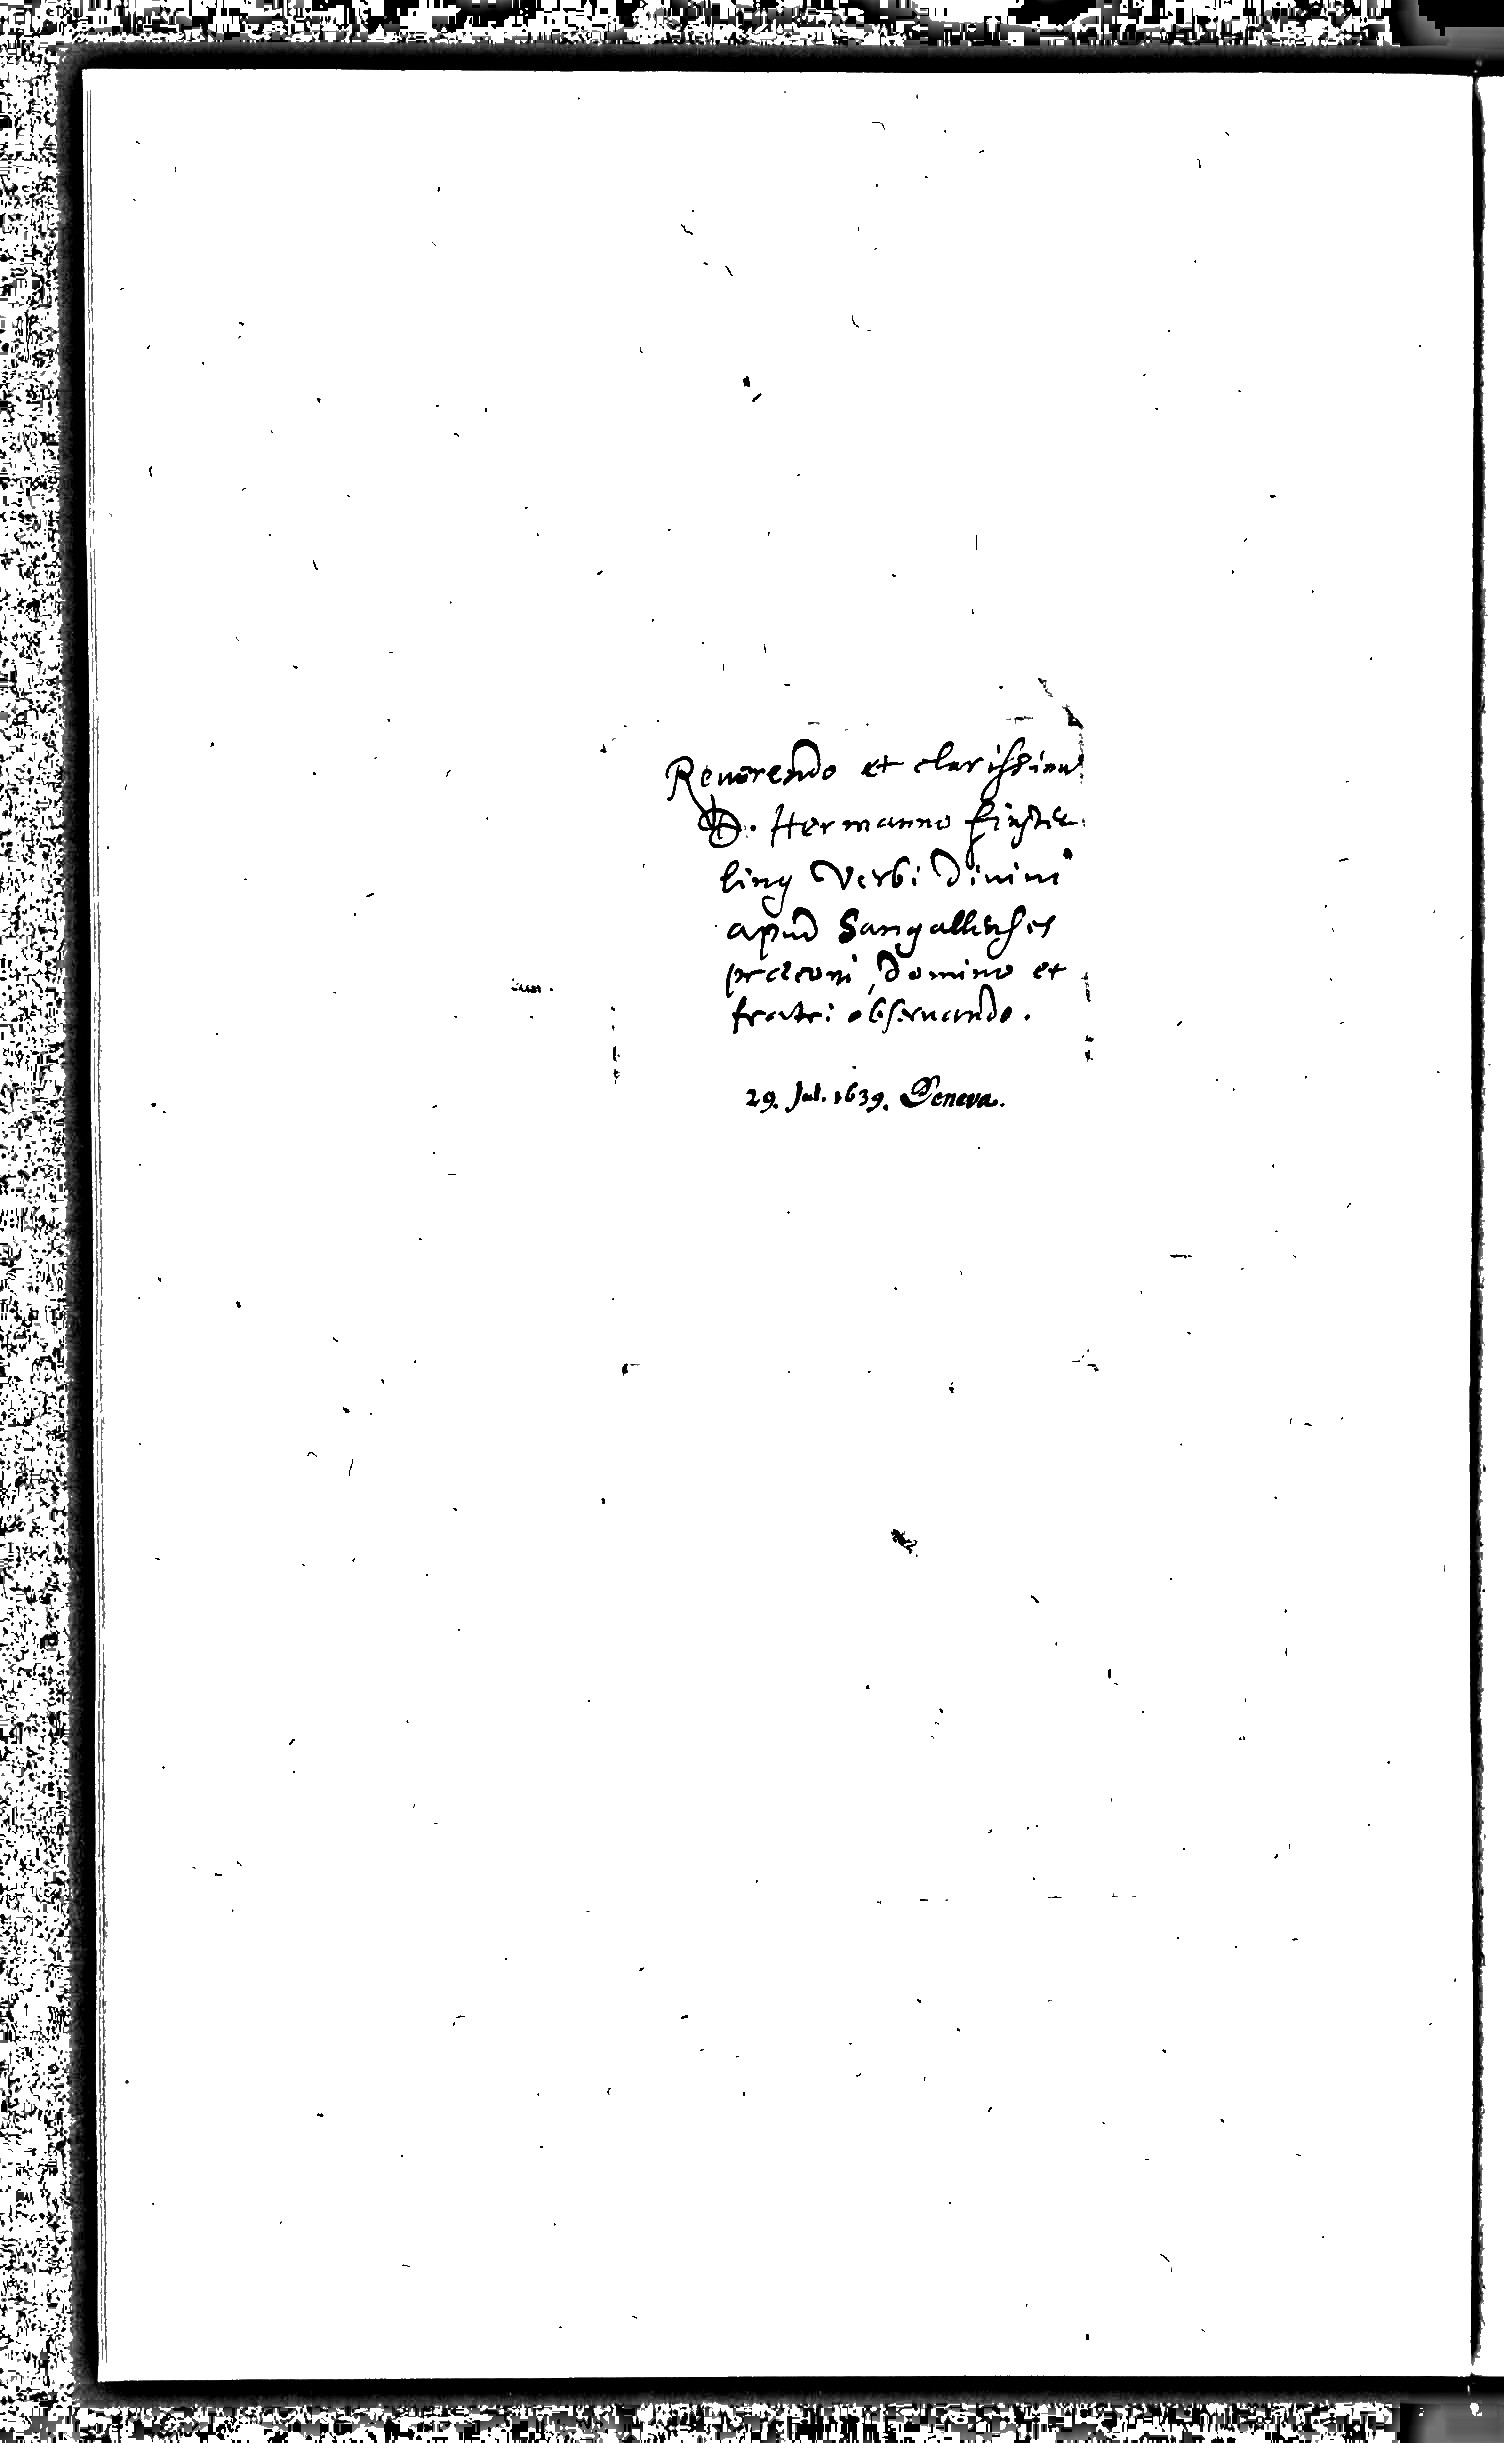 Reuerendo et clarissimo
D. Hermanno
ling Verbi Diuini
apud Sangallenses
præconi, Domino et
fratri obseruando.
29. Jul. 1639. Geneva.